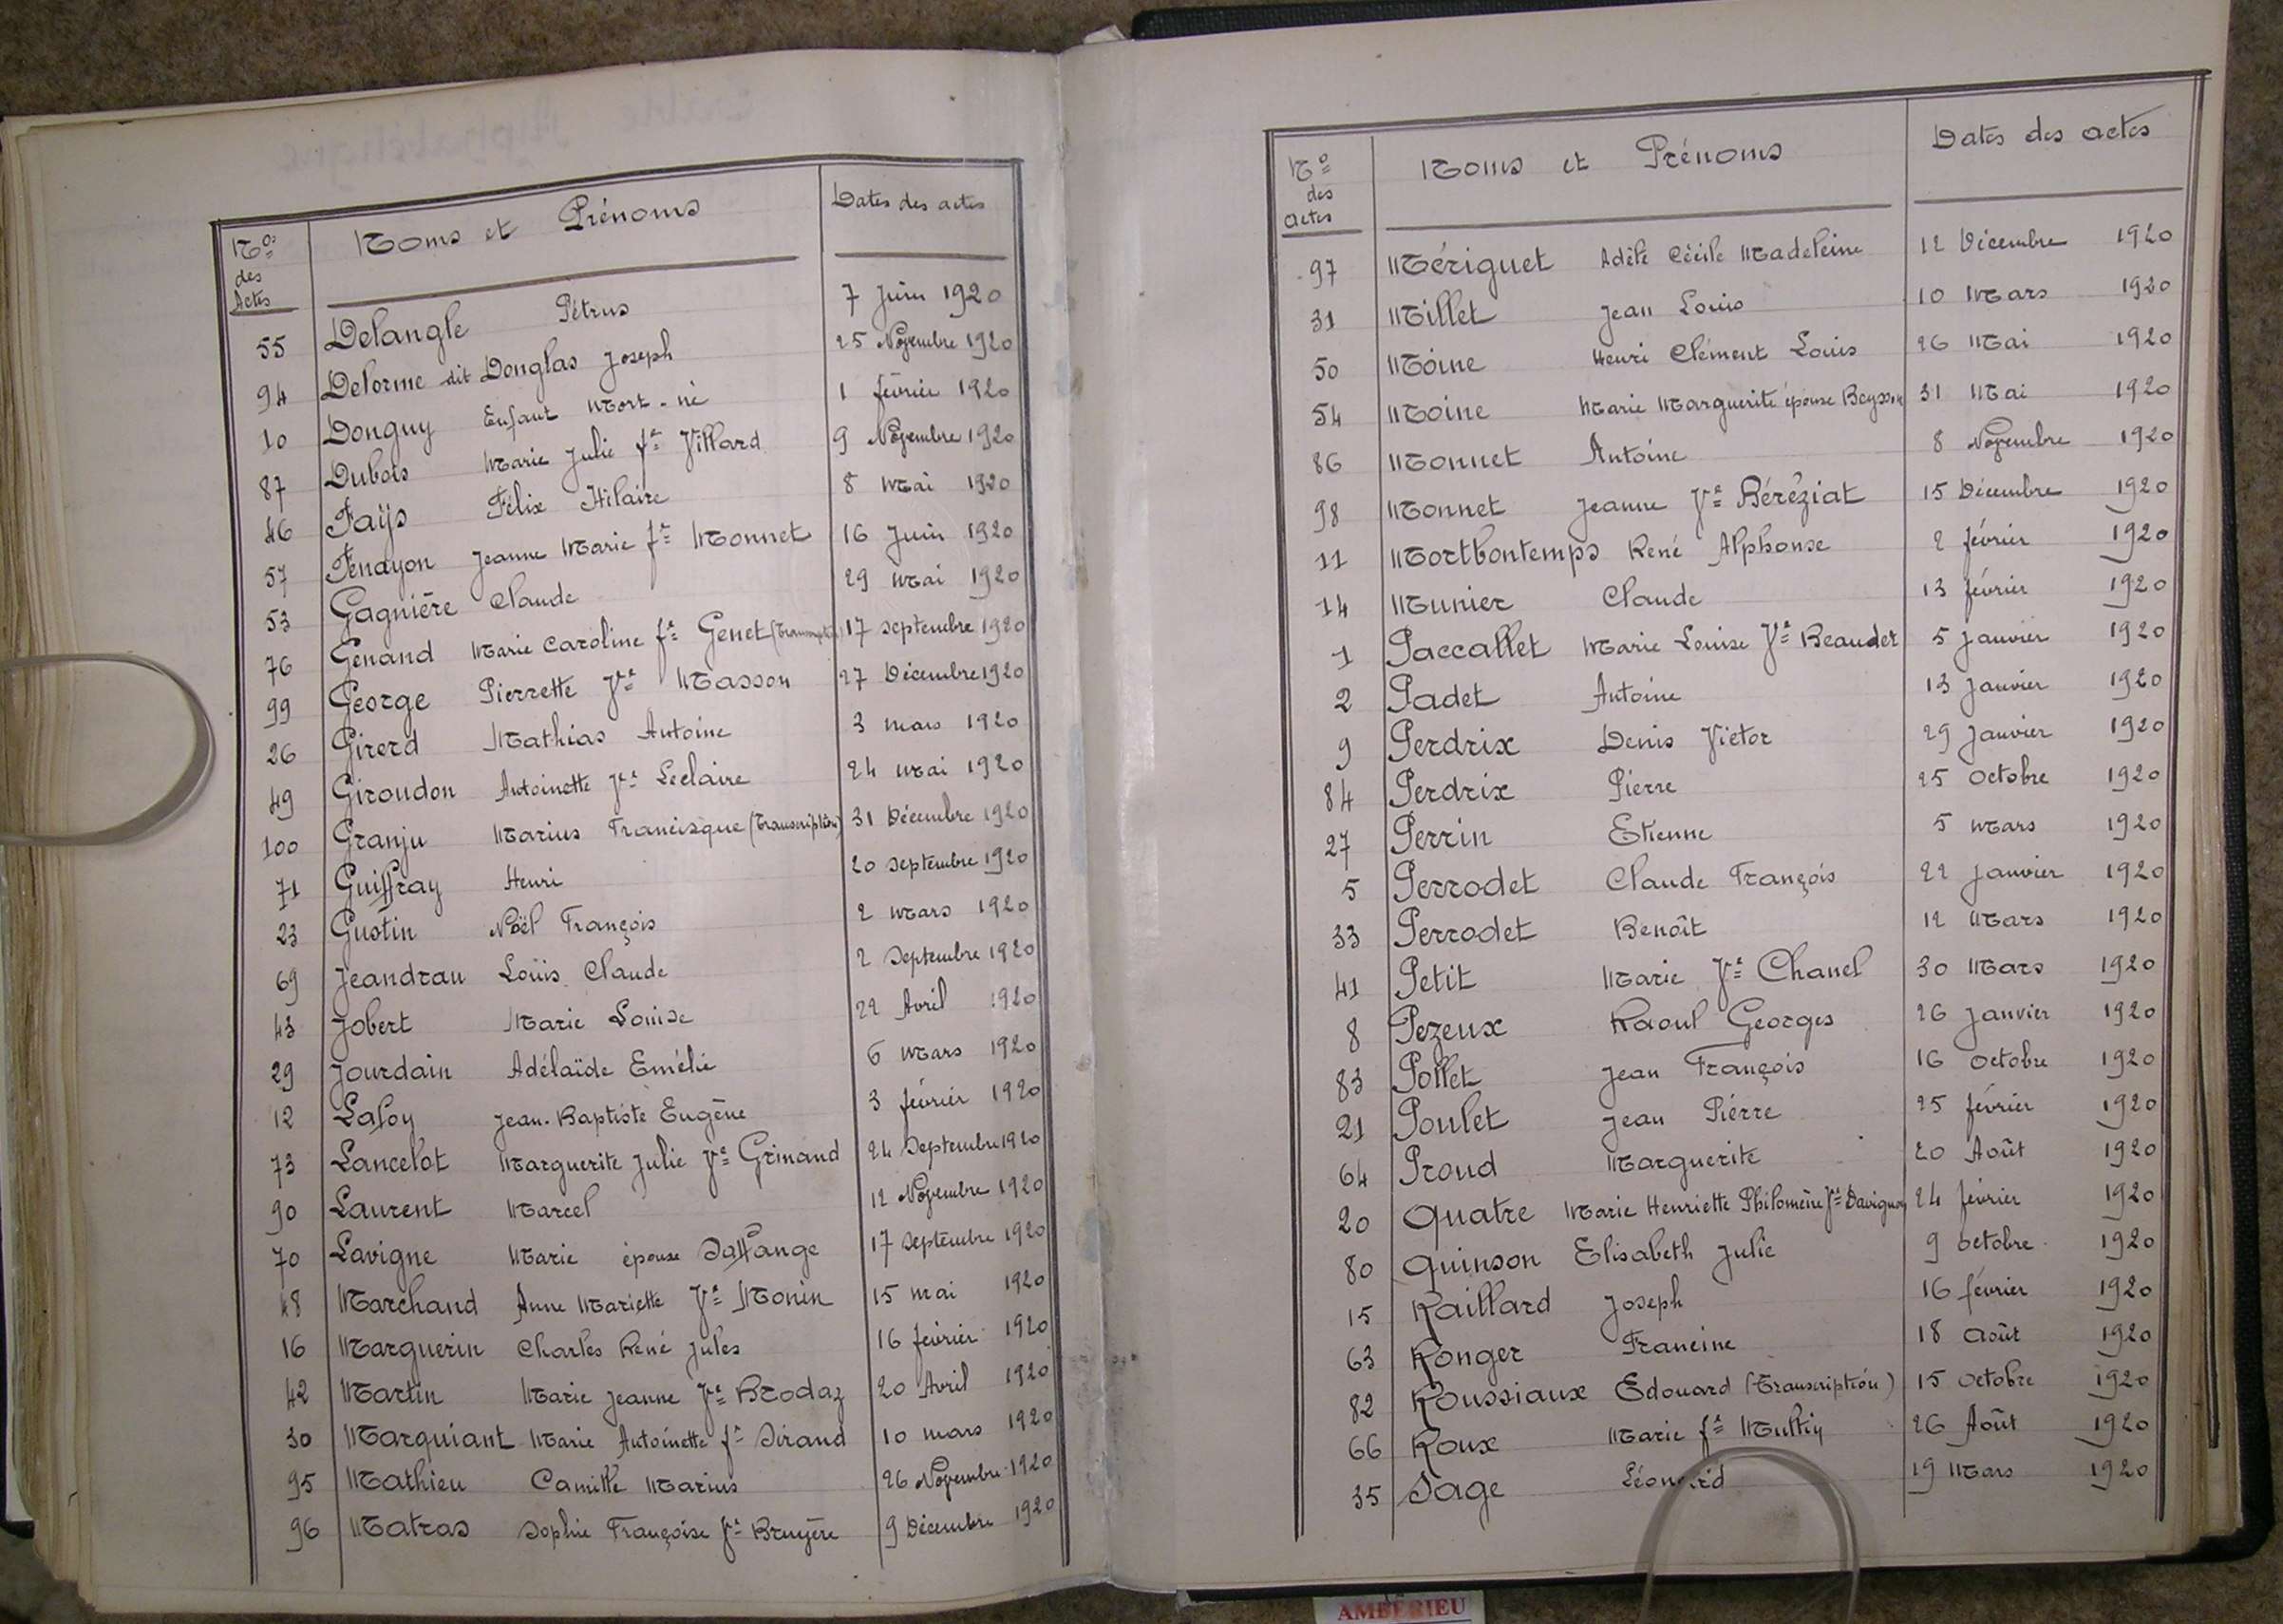 Nos des Actes Noms et Prénoms Dates des actes
55 Delangle Pétrus 7 Juin 1920
94 Delorme dit Donglas Joseph 25 Novembre 1920
10 Donguy Enfant Mort-né 1 février 1920
87 Dubois Marie Julie fe Villard 9 Novembre 1920
46 Faÿs Félix Hilaire 8 Mai 1920
57 Fenayon Jeanne Marie fe Monnet 16 Juin 1920
53 Gagnière Claude 29 Mai 1920
76 Genand Marie Caroline fe Genet 17 Septembre 1920
99 George Pierrette Ve Masson 27 Décembre 1920
26 Girerd Mathias Antoine 3 mars 1920
49 Giroudon Antoinette Ve Leclaire 24 Mai 1920
100 Granju Marius Francisque (Transcription) 31 Décembre 1920
71 Guiffray Henri 20 Septembre 1920
23 Gustin Noël François 2 Mars 1920
69 Jeandrau Louis Claude 2 Septembre 1920
43 Jobert Marie Louise 22 Avril 1920
29 Jourdain Adélaïde Emélie 6 Mars 1920
12 Lafoy Jean-Baptiste Eugène 3 février 1920
73 Lancelot Marguerite Julie Ve Grinand 24 Septembre 1920
90 Laurent Marcel 12 Novembre 1920
70 Lavigne Marie épouse Saffange 17 Septembre 1920
48 Marchand Anne Mariette Ve Monin 15 mai 1920
16 Marguerin Charles René Jules 16 février 1920
42 Martin Marie Jeanne Ve Brodaz 20 Avril 1920
30 Marquiant Marie Antoinette fe Sirand 10 mars 1920
95 Mathieu Camille Marius 26 Novembre 1920
96 Matras Sophie Françoise Ve Bruyère 9 Décembre 1920
No des actes Noms et Prénoms Dates des actes
97 Mériguet Adèle Cécile Madeleine 12 Décembre 1920
31 Millet Jean Louis 10 Mars 1920
50 Moine Henri Clément Louis 26 Mai 1920
54 Moine Marie Marguerite épouse Beysson 31 Mai 1920
86 Monnet Antoine 8 Novembre 1920
98 Monnet Jeanne Ve Béréziat 15 Décembre 1920
11 Mortbontemps René Alphonse 2 février 1920
14 Munier Claude 13 février 1920
1 Paccallet Marie Louise Ve Beaudet 5 Janvier 1920
2 Padet Antoine 13 Janvier 1920
9 Perdrix Denis Victor 29 Janvier 1920
84 Perdrix Pierre 25 Octobre 1920
27 Perrin Etienne 5 Mars 1920
5 Perrodet Claude François 22 Janvier 1920
33 Perrodet Benoît 12 Mars 1920
41 Petit Marie Ve Chanel 30 Mars 1920
8 Pezeux Raoul Georges 26 Janvier 1920
83 Pollet Jean François 16 Octobre 1920
21 Poulet Jean Pierre 25 février 1920
64 Proud Marguerite 20 Août 1920
20 Quatre Marie Henriette Philomène Ve Davignon 24 février 1920
80 Quinson Elisabeth Julie 9 Octobre 1920
15 Raillard Joseph 16 février 1920
63 Ronger Francine 18 Août 1920
82 Roussiaux Edouard (Transcription) 15 Octobre 1920
66 Roux Marie fe 26 Août 1920
35 Sage Léonard 19 Mars 1920
AMBERIEU